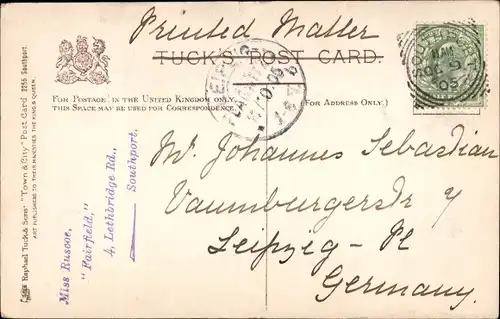 Printed Matter
TUCK'S POST CARD.
FOR POSTAGE IN THE UNITED KINGDOM ONLY,
THIS SPACE MAY BE USED FOR CORRESPONDENCE.
(FOR ADDRESS ONLY.)
SOUTHPORT
Raphael Tuck & Sons' "Town & City" Post Card 2256 Southport.
ART PUBLISHERS TO THEIR MAJESTIES THE KING & QUEEN.
Miss Ruscoe,
"Fairfield,"
4, Lethbridge Rd.,
Southport.
Mr Johannes Sebastian
Naumburgerstr 4
Leipzig - Pl
Germany.